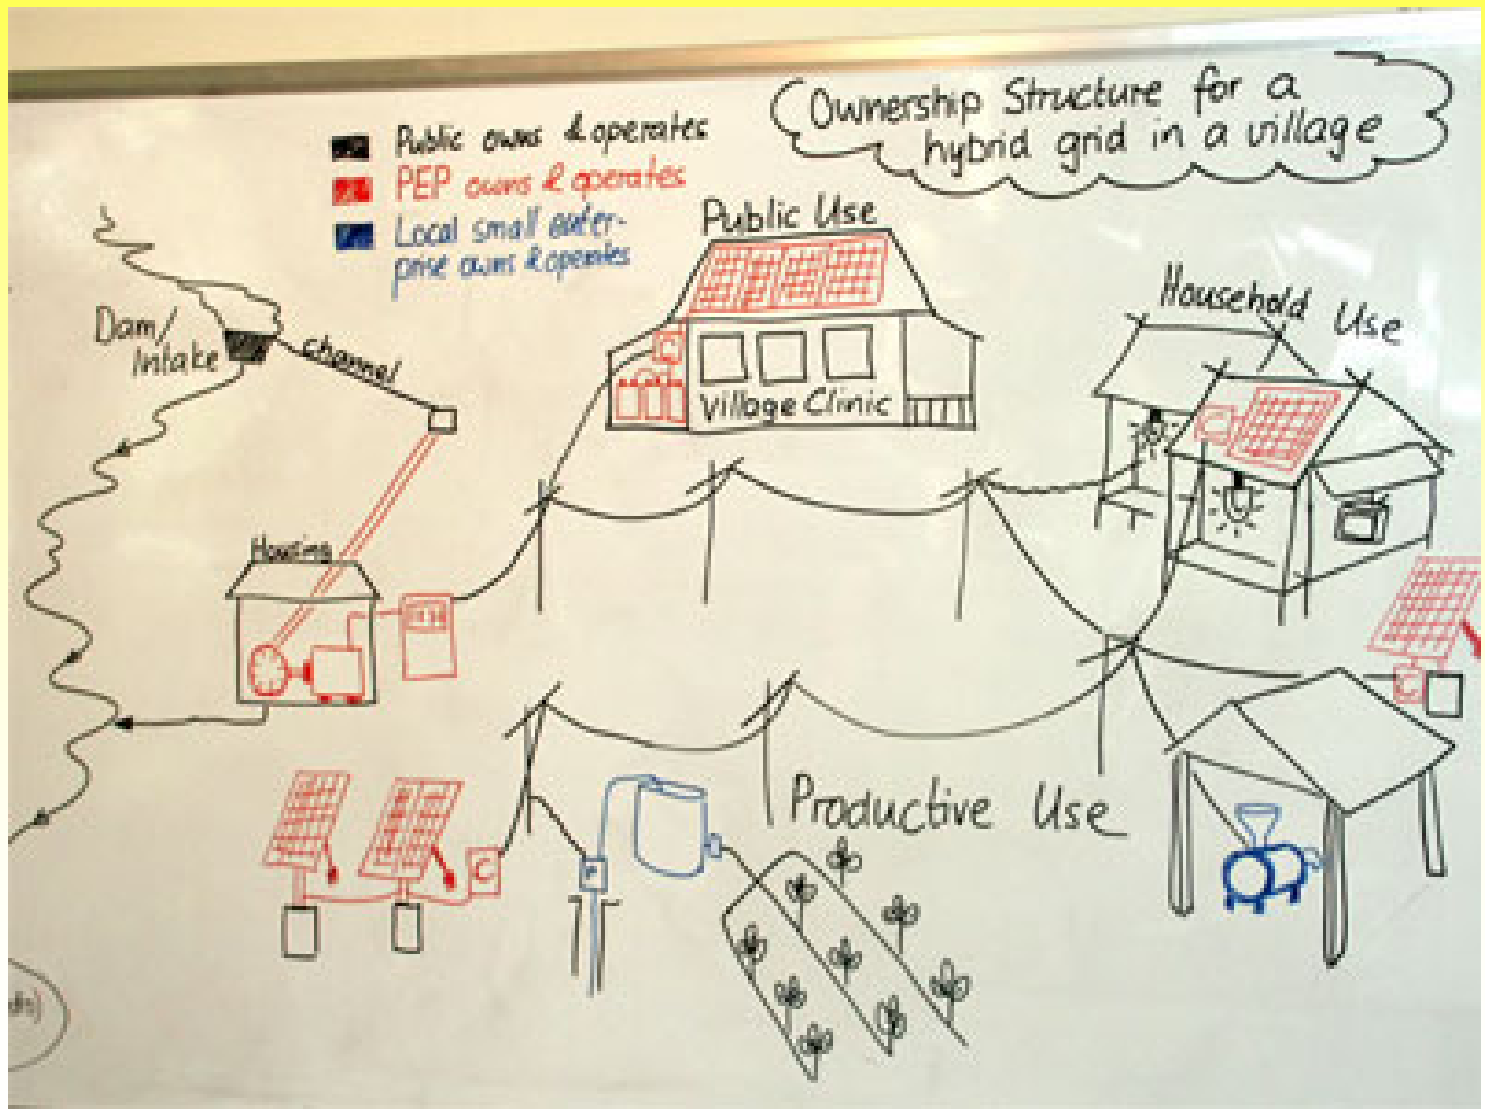 Ownership Structure for a
hybrid grid in a village
Public owns & operates
PEP owns & operates
Local small enter-
prise owns & operates
Public Use
Household Use
Dam/
Intake
channel
Village Clinic
Housing
C
C
C
C
Productive Use
P